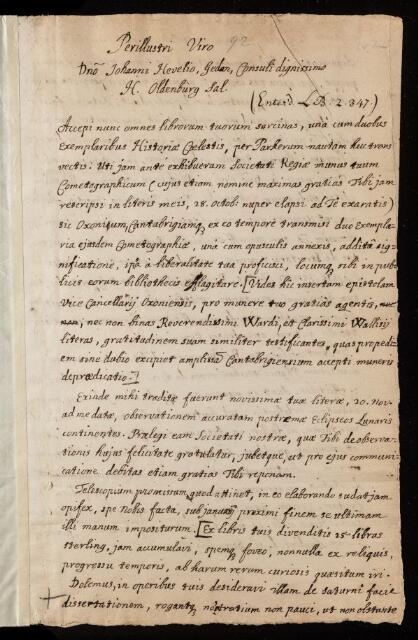 Perillustri Viro
92
Dnō Johanni Hevelio, Gedan, Consuli dignissimo
H. Oldenburg Sal.
(Enterd LB. 2. 347.)
Accepi nunc omnes librorum tuorum sarcinas, unà cum duobus
exemplaribus Historiæ Cœlestis, per Parkerum nautam huc trans
vectis. Uti jam ante exhibueram Societati Regiæ munus tuum
Cometographicum (cujus etiam nomine maximas gratias Tibi jam
rescripsi in literis meis, 18. Octobr. nuper elapsi ad Te exaratis)
sic Oxonium, Cantabrigiamq, ex eo tempore transmisi duo exempla-
ria ejusdem Cometographiæ, unà cum opusculis annexis, additâ sig-
nificatione, ipsa à liberalitate tua proficisci, locumq sibi in pub-
licis eorum bibliothecis flagitare. [Vides hîc insertam epistolam
Vice Cancellarij Oxoniensis, pro munere tuo gratias agentis,
nec non binas Reverendissimi Wardi, et Clarissimi Wallisij
literas, gratitudinem suam similiter testificantes, quas propedi-
em sine dubio excipiet amplissima Cantabrigiensium accepti muneris
deprædicatio.]
Exinde mihi traditæ fuerunt novissimæ tuæ literæ, 20. Nov.
ad me datæ, observationem accuratam postremæ Eclipseos Lunaris
continentes. Prælegi eam Societati nostræ, quæ Tibi de observa-
tionis hujus felicitate gratulatur, jubetque, ut pro ejus communi-
catione debitas etiam gratias Tibi reponam.
Telescopium promissum quod attinet, in eo elaborando sudat jam
opifex, spe nobis facta, sub januarij proximi finem se ultimam
illi manum impositurum. [Ex libris tuis divenditis 15- libras
sterling. jam accumulavi, spemq foveo, nonnulla ex reliquis
progressu temporis, ab harum rerum curiosis quæsitum iri.
Dolemus, in operibus tuis desiderari illam de Saturni facie
dissertationem, rogantq nostratium non pauci, ut non obstante